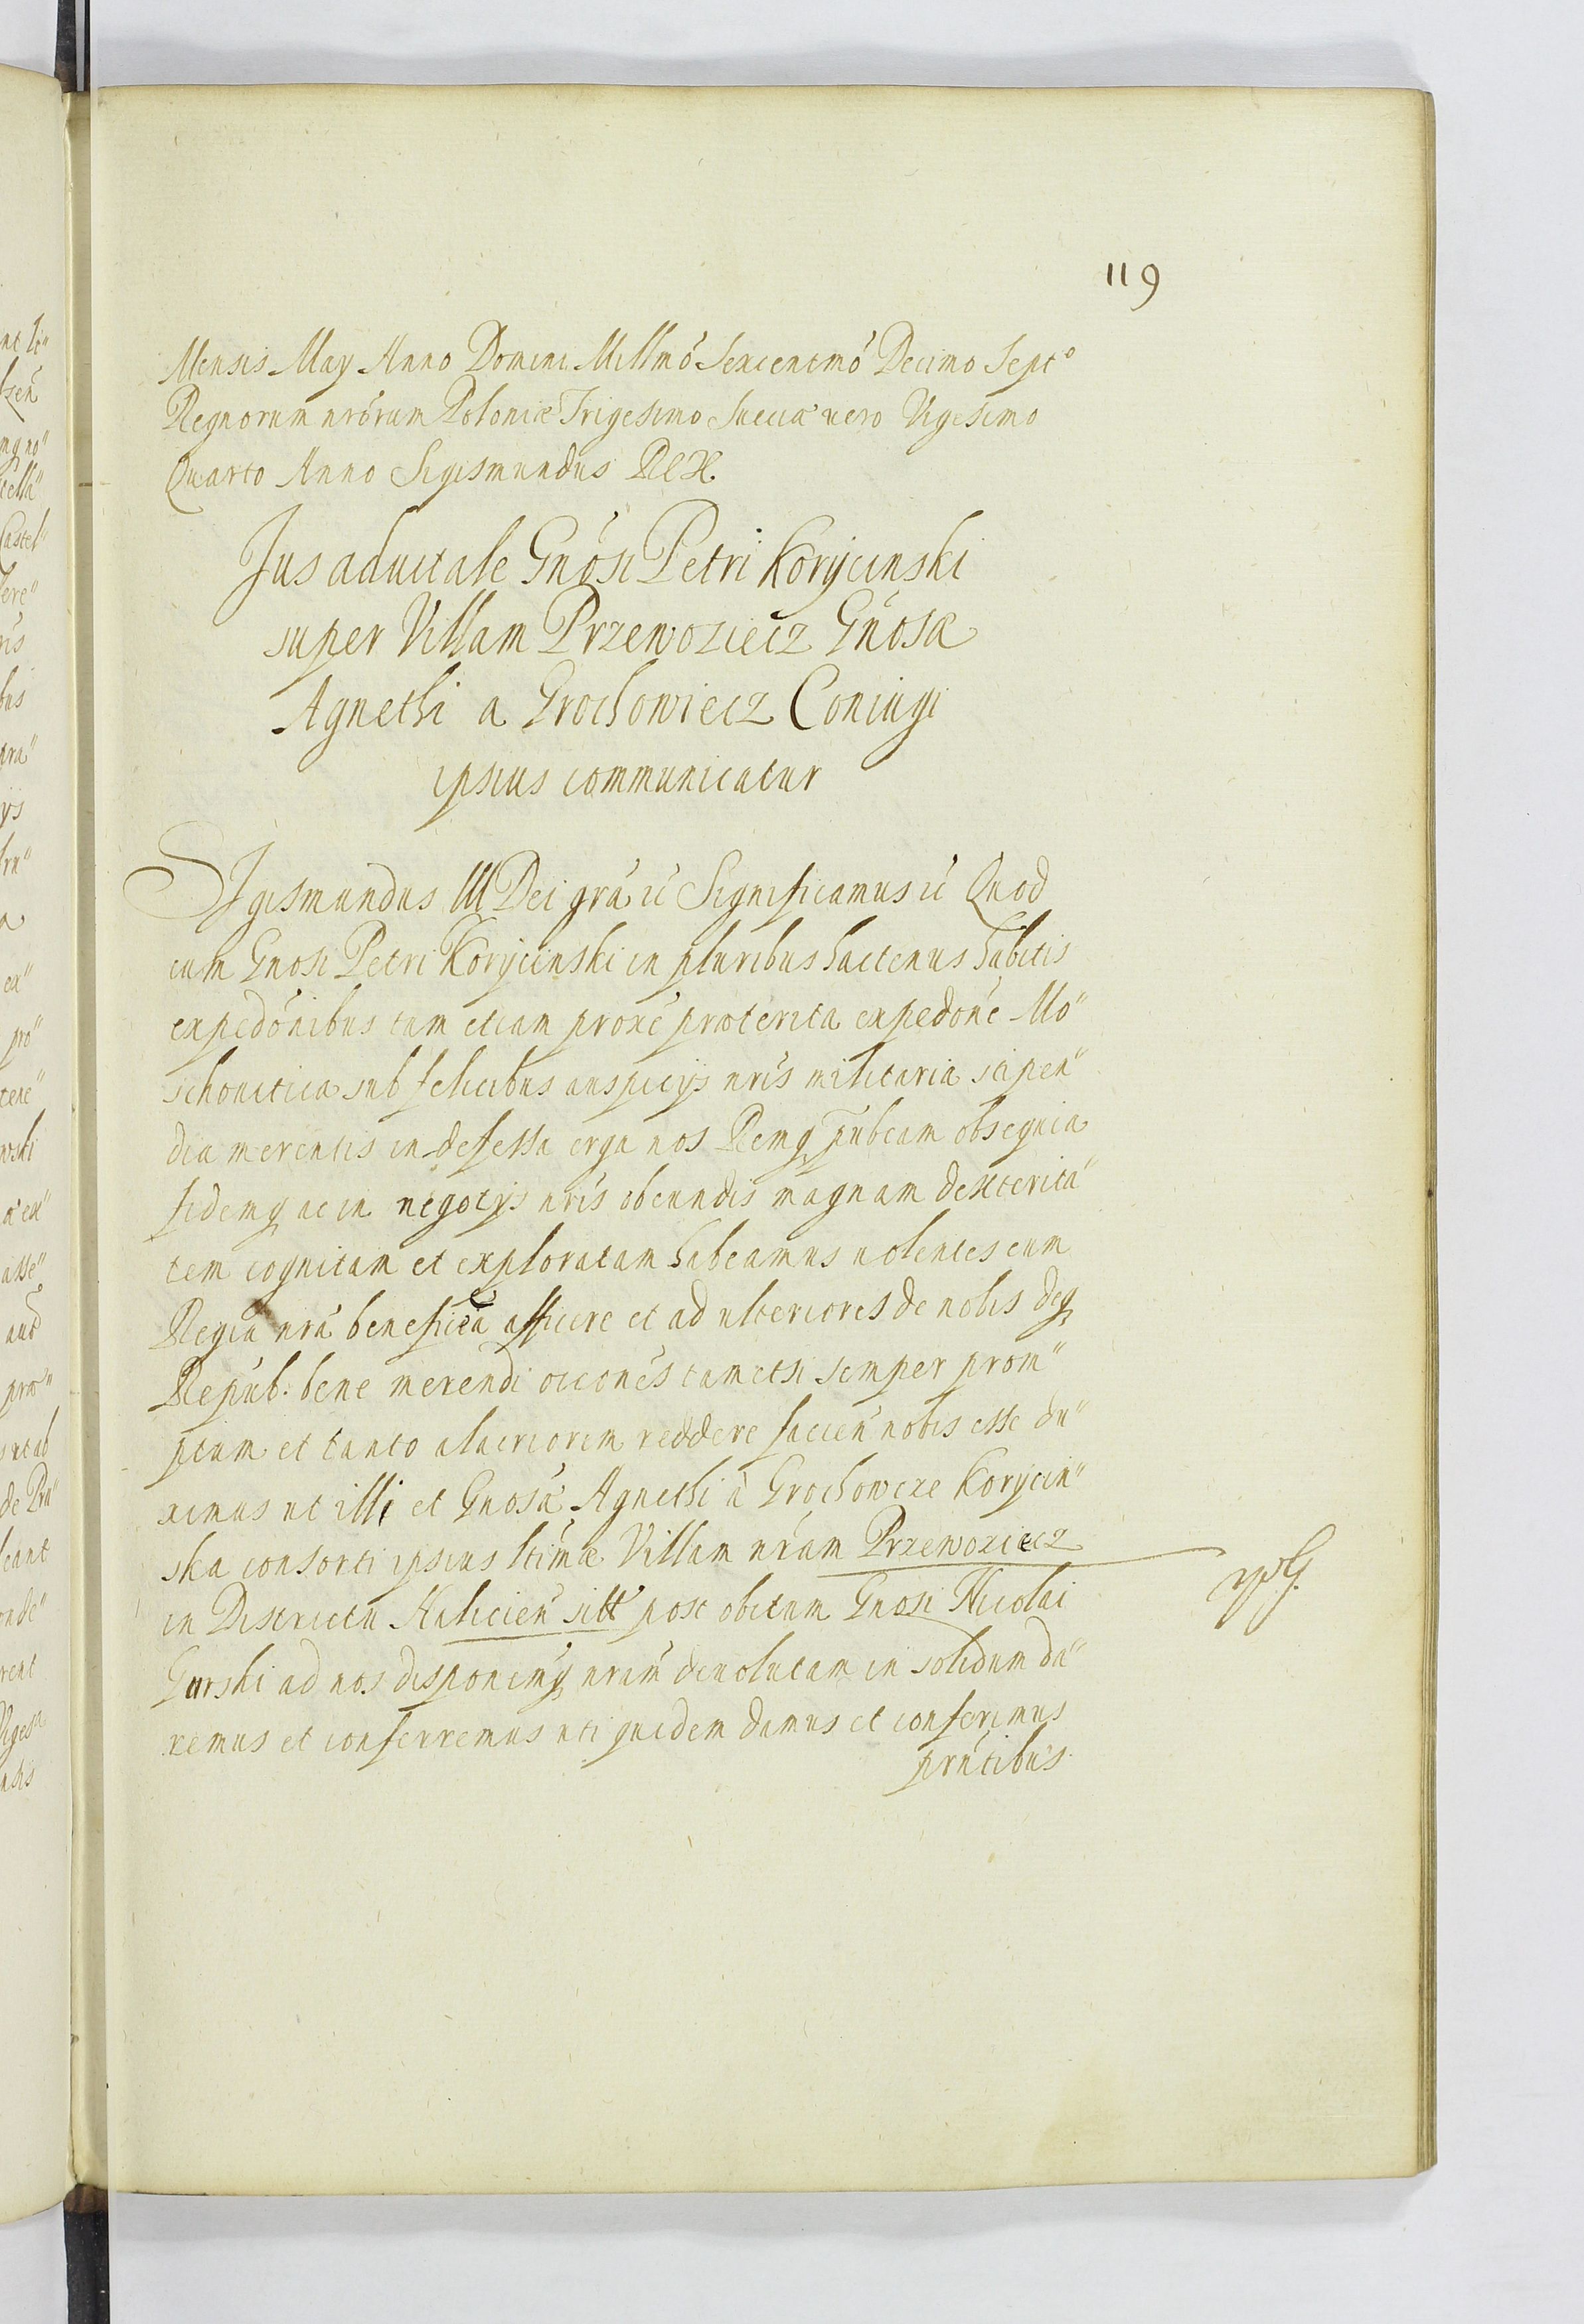 119
Mensis May Anno Domini Millmo Sexcentmo Decimo Septo
Regnorum nrorum Poloniæ Trigesimo Sueciæ uero Vigesimo
Quarto Anno Sigismundus Rex.
Jus aduitale Gnosi Petri Koryczinski
super Villam Przewoziecz Gnosæ
Agnethi a Grochowiecz Coniugi
ipsius communicatur
Sigismundus III Dei gra ic Significamus ic Quod
cum Gnosi Petri Korycinski in pluribus hactenus habitis
expedonibus tum etiam proxe præterita expedone Mo"
schouitica sub felicibus auspicijs nris militaria stipen"
dia merentis indefessa erga nos Remq pubcam obsequia
fidemq ac in negotijs nris obeundis magnam dexterita"
tem cognitam et exploratam habeamus uolentes eum
Regia nra beneficia afficere et ad ulteriores de nobis deq
Repub: bene merendi occones tametsi semper prom"
ptum et tanto alacriorem reddere facien nobis esse du"
ximus ut illi et Gnosa Agnethi a Grochowcze Korycin"
ska consorti ipsius ltimæ Villam nram Przewoziecz
in Districtu Halicien sitt post obitum Gnosi Nicolai
Gurski ad nos disponemq nram deuolutam in solidum da"
remus et conferremus uti quidem damus et conferimus
prntibus